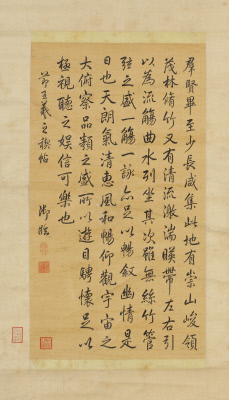 羣賢畢至少長咸集此地有崇山峻領
茂林脩竹又有清流激湍暎帶左右引
以為流觴曲水列坐其次雖無絲竹管
弦之盛一觴一詠亦足以暢敘幽情是
日也天朗氣清惠風和暢仰觀宇宙之
大俯察品類之盛所以遊目騁懷足以
極視聽之娛信可樂也
節王羲之禊帖
御臨